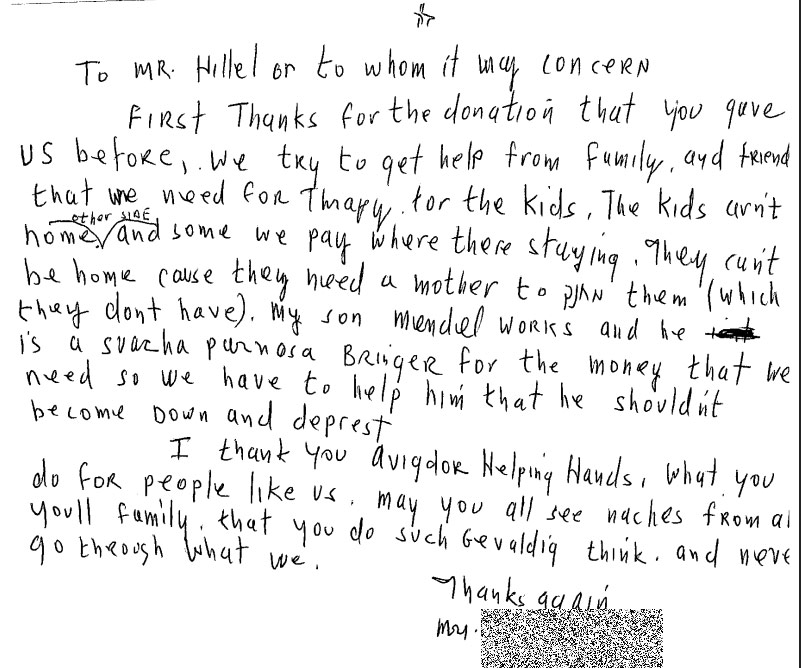 To MR. Hillel or to whom it may concern
First Thanks for the donation that you gave
us before, we try to get help from family, and friend
that we need for Thrapy for the kids, The kids arn't
other side
home, and some we pay where there staying. They can't
be home cause they need a mother to them (which
they dont have). My son Mendel works and he
is a svacha purnosa Bringer for the money that we
need so we have to help him that he should'nt
become Down and deprest
I thank you Avigdor Helping Hands, what you
do for people like us. may you all see naches from al
youll family, that you do such Gevaldig think. and neve
go through what we.
Thanks again